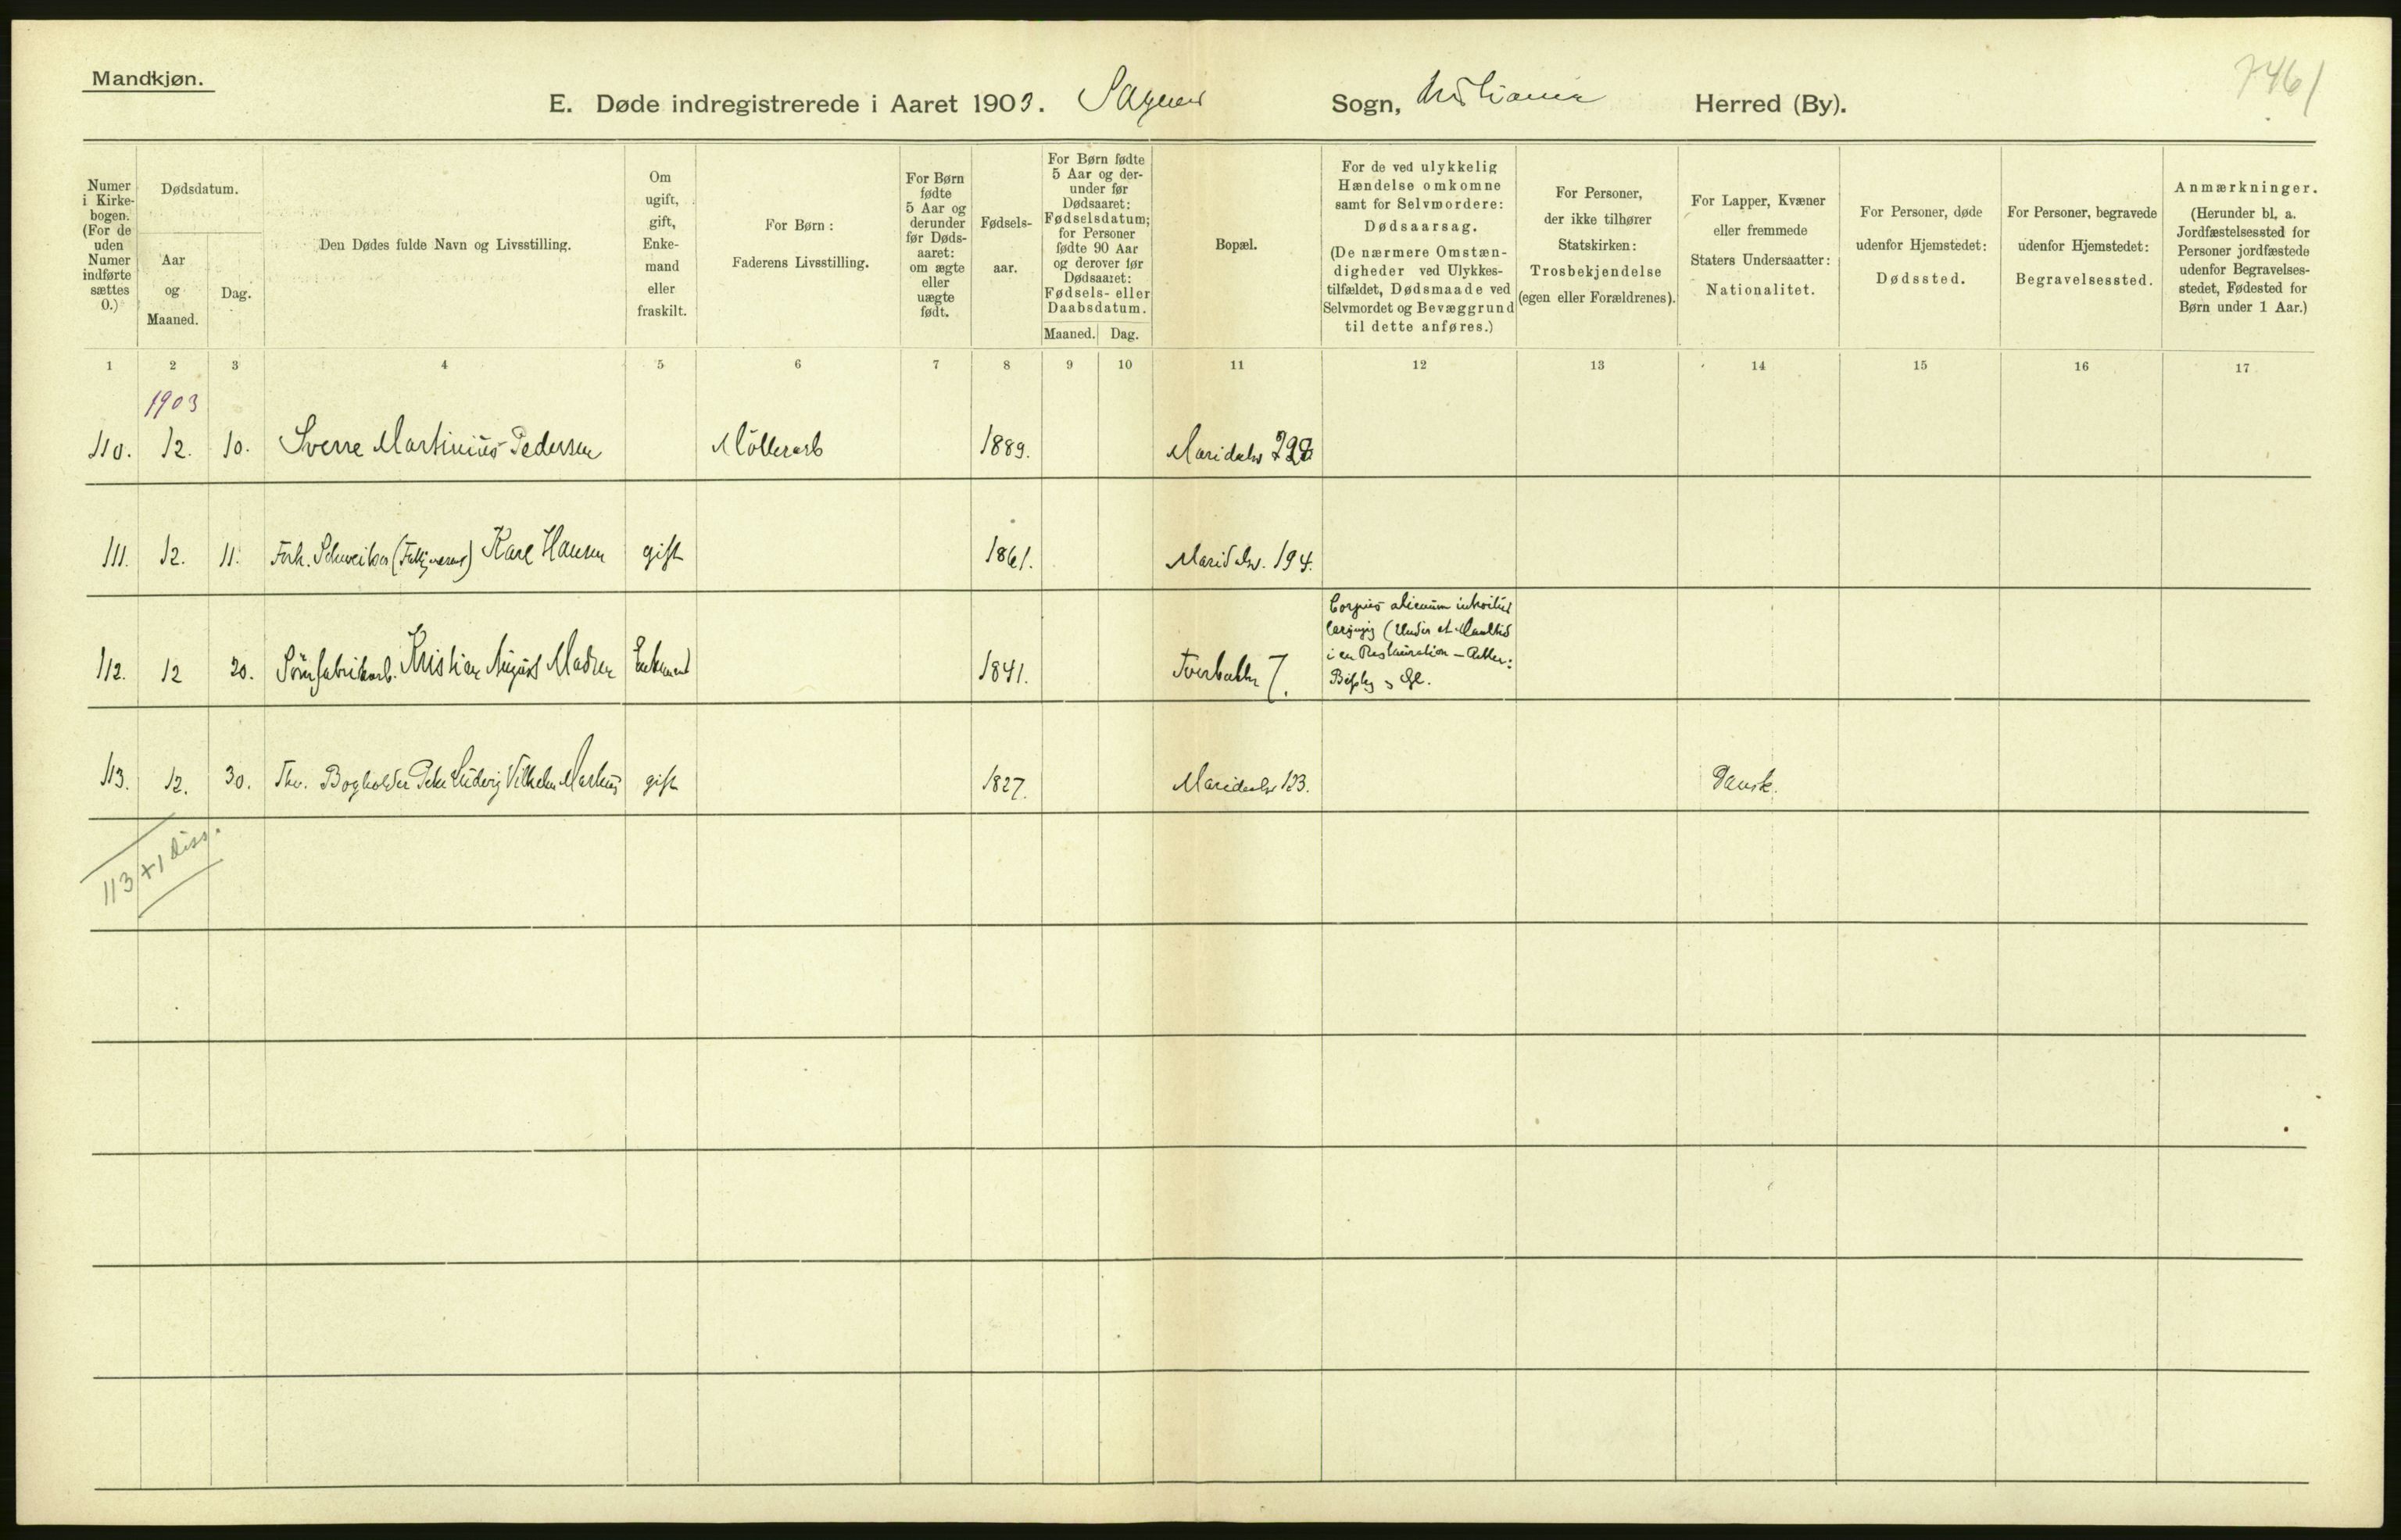 Mandkjøn.
7461
E. Døde indregistrerede i Aaret 1903. Sagenes Sogn, Kristiania Herred (By).
Numer i Kirke-bogen. (For de uden Numer indførte sættes 0.)
Dødsdatum.
Aar og Maaned.
Dag.
Den Dødes fulde Navn og Livsstilling.
Om ugift, gift, Enke-mand eller fraskilt.
For Børn: Faderens Livsstilling.
For Børn fødte 5 Aar og derunder før Døds-aaret: om ægte eller uægte født.
Fødsels-aar.
For Børn fødte 5 Aar og der-under før Dødsaaret: Fødselsdatum; for Personer fødte 90 Aar og derover før Dødsaaret: Fødsels- eller Daabsdatum.
Maaned. Dag.
Bopæl.
For de ved ulykkelig Hændelse omkomne samt for Selvmordere: Dødsaarsag. (De nærmere Omstæn-digheder ved Ulykkes-tilfældet, Dødsmaade ved Selvmordet og Bevæggrund til dette anføres.)
For Personer, der ikke tilhører Statskirken: Trosbekjendelse (egen eller Forældrenes).
For Lapper, Kvæner eller fremmede Staters Undersaatter: Nationalitet.
For Personer, døde udenfor Hjemstedet: Dødssted.
For Personer, begravede udenfor Hjemstedet: Begravelsessted.
Anmærkninger. (Herunder bl. a. Jordfæstelsessted for Personer jordfæstede udenfor Begravelses-stedet, Fødested for Børn under 1 Aar.)
1 2 3 4 5 6 7 8 9 10 11 12 13 14 15 16 17
1903
110. 12. 10. Sverre Martinius Pedersen Møllerarb 1889. Maridalsv
111. 12. 11. Forh. Karl Hansen gift 1861. Maridalsv. 194.
112. 12 20. Kristian August Madsen Enkemand 1841. 7.
Corpus alienum introitus
laryngis (Under et Maaltid
i en Restauration
113. 12. 30. Fhv. Bogholder Peter Ludvig Vilhelm Markus gift 1827. Maridalsv 123. Dansk.
113 + 1 diss.